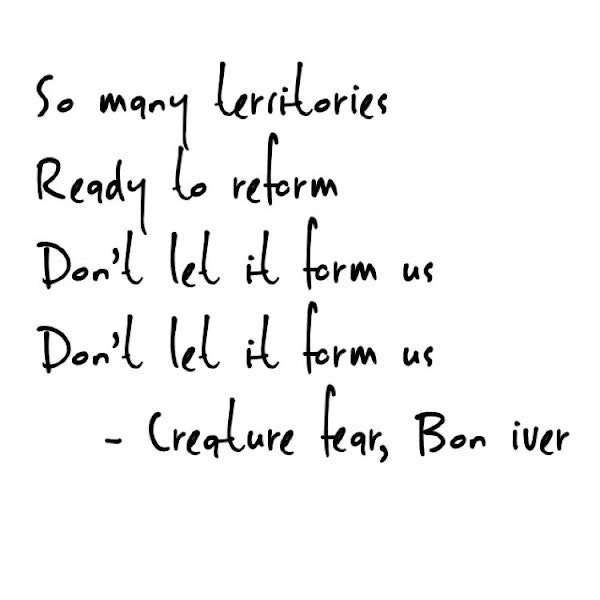 So many territories
Ready to reform
Don't let it form us
Don't let it form us
- Creature fear, Bon iver